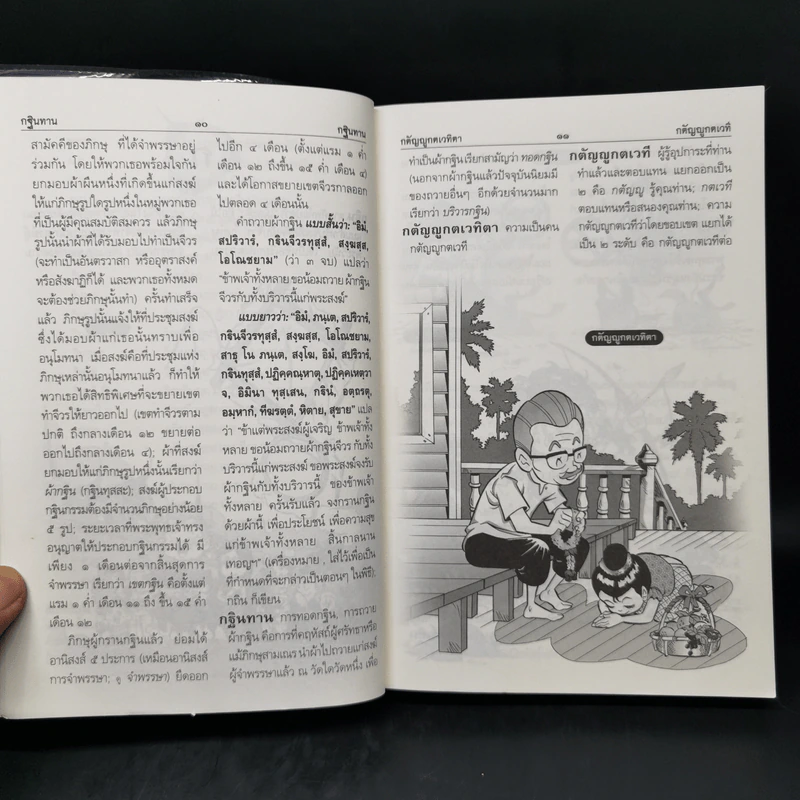 กฐินทาน
๑๐
กฐินทาน
สามัคคีของภิกษุ ที่ได้จำพรรษาอยู่
ร่วมกัน โดยให้พวกเธอพร้อมใจกัน
ยกมอบผ้าผืนหนึ่งที่เกิดขึ้นแก่สงฆ์
ให้แก่ภิกษุรูปใดรูปหนึ่งในหมู่พวกเธอ
ที่เป็นผู้มีคุณสมบัติสมควร แล้วภิกษุ
รูปนั้นนำผ้าที่ได้รับมอบไปทำเป็นจีวร
(จะทำเป็นอันตรวาสก หรืออุตราสงค์
หรือสังฆาฏิก็ได้ และพวกเธอทั้งหมด
จะต้องช่วยภิกษุนั้นทำ) ครั้นทำเสร็จ
แล้ว ภิกษุรูปนั้นแจ้งให้ที่ประชุมสงฆ์
ซึ่งได้มอบผ้าแก่เธอนั้นทราบเพื่อ
อนุโมทนา เมื่อสงฆ์คือที่ประชุมแห่ง
ภิกษุเหล่านั้นอนุโมทนาแล้ว ก็ทำให้
พวกเธอได้สิทธิพิเศษที่จะขยายเขต
ทำจีวรให้ยาวออกไป (เขตทำจีวรตาม
ปกติ ถึงกลางเดือน ๑๒ ขยายต่อ
ออกไปถึงกลางเดือน ๔); ผ้าที่สงฆ์
ยกมอบให้แก่ภิกษุรูปหนึ่งนั้นเรียกว่า
ผ้ากฐิน (กฐินทุสสะ); สงฆ์ผู้ประกอบ
กฐินกรรมต้องมีจำนวนภิกษุอย่างน้อย
๕ รูป; ระยะเวลาที่พระพุทธเจ้าทรง
อนุญาตให้ประกอบกฐินกรรมได้ มี
เพียง ๑ เดือนต่อจากสิ้นสุดการ
จำพรรษา เรียกว่า เขตกฐิน คือตั้งแต่
แรม ๑ ค่ำ เดือน ๑๑ ถึง ขึ้น ๑๕ ค่ำ
เดือน ๑๒
ภิกษุผู้กรานกฐินแล้ว ย่อมได้
อานิสงส์ ๕ ประการ (เหมือนอานิสงส์
การจำพรรษา; ดู จำพรรษา) ยืดออก
ไปอีก ๔ เดือน (ตั้งแต่แรม ๑ ค่ำ
เดือน ๑๒ ถึงขึ้น ๑๕ ค่ำ เดือน ๔)
และได้โอกาสขยายเขตจีวรกาลออก
ไปตลอด ๔ เดือนนั้น
คำถวายผ้ากฐิน แบบสั้นว่า: "อิมํ,
สปริวารํ, กฐินจีวรทุสฺสํ, สงฺฆสฺส,
โอโณชยาม" (ว่า ๓ จบ) แปลว่า
"ข้าพเจ้าทั้งหลาย ขอน้อมถวาย ผ้ากฐิน
จีวรกับทั้งบริวารนี้แก่พระสงฆ์"
แบบยาวว่า: "อิมํ, ภนฺเต, สปริวารํ,
กฐินจีวรทุสฺสํ, สงฺฆสฺส, โอโณชยาม,
สาธุ โน ภนฺเต, สงฺโฆ, อิมํ, สปริวารํ,
กฐินทุสฺสํ, ปฏิคฺคณฺหาตุ, ปฏิคฺคเหตฺวา
จ, อิมินา ทุสฺเสน, กฐินํ, อตฺถรตุ,
อมฺหากํ, ทีฆรตฺตํ, หิตาย, สุขาย" แปล
ว่า "ข้าแต่พระสงฆ์ผู้เจริญ ข้าพเจ้าทั้ง
หลาย ขอน้อมถวายผ้ากฐินจีวร กับทั้ง
บริวารนี้แก่พระสงฆ์ ขอพระสงฆ์จงรับ
ผ้ากฐินกับทั้งบริวารนี้ ของข้าพเจ้า
ทั้งหลาย ครั้นรับแล้ว จงกรานกฐิน
ด้วยผ้านี้ เพื่อประโยชน์ เพื่อความสุข
แก่ข้าพเจ้าทั้งหลาย สิ้นกาลนาน
เทอญฯ" (เครื่องหมาย , ใส่ไว้เพื่อเป็น
ที่กำหนดที่จะกล่าวเป็นตอนๆ ในพิธี);
กถิน ก็เขียน
กฐินทาน การทอดกฐิน, การถวาย
ผ้ากฐิน คือการที่คฤหัสถ์ผู้ศรัทธาหรือ
แม้ภิกษุสามเณร นำผ้าไปถวายแก่สงฆ์
ผู้จำพรรษาแล้ว ณ วัดใดวัดหนึ่ง เพื่อ
กตัญญูกตเวทิตา
๑๑
กตัญญูกตเวที
ทำเป็นผ้ากฐิน เรียกสามัญว่า ทอดกฐิน
(นอกจากผ้ากฐินแล้วปัจจุบันนิยมมี
ของถวายอื่นๆ อีกด้วยจำนวนมาก
เรียกว่า บริวารกฐิน)
กตัญญูกตเวทิตา ความเป็นคน
กตัญญูกตเวที
กตัญญูกตเวที ผู้รู้อุปการะที่ท่าน
ทำแล้วและตอบแทน แยกออกเป็น
๒ คือ กตัญญู รู้คุณท่าน; กตเวที
ตอบแทนหรือสนองคุณท่าน; ความ
กตัญญูกตเวทีว่าโดยขอบเขต แยกได้
เป็น ๒ ระดับ คือ กตัญญูกตเวทีต่อ
กตัญญูกตเวทิตา